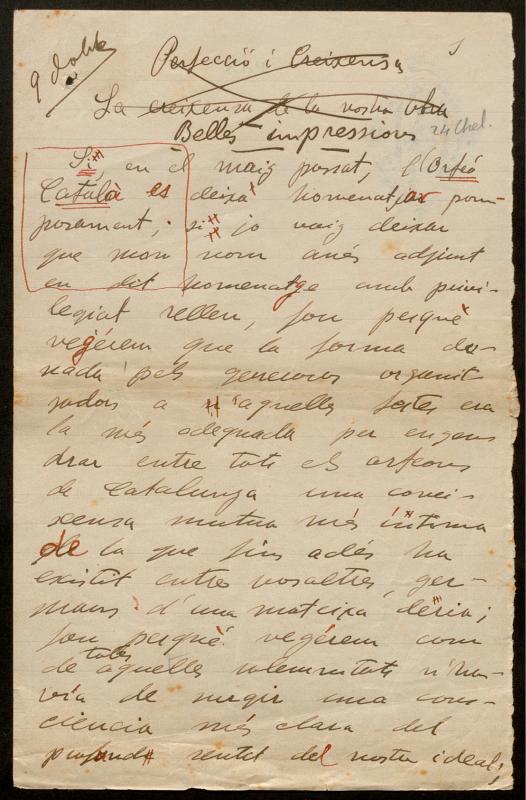 9 doble
Perfecció i Creixensa
1
La creixensa de la nostra obra
Belles impressions
24 Chel.
Si, en el maig passat, l'Orfeó
Català es deixà homenatjar pom-
posament; si jo vaig deixar
que mon nom anés adjunt
en dit homenatge amb privi-
legiat relleu, fou perquè
vegérem que la forma do-
nada pels generosos organit
zadors a aquelles festes era
la més adequada per engen
drar entre tots els orfeons
de Catalunya una conei-
xensa mutua més íntima
de la que fins adés ha
existit entre nosaltres, ger-
mans d'una mateixa dèria;
fou perquè vegérem com
de totes aquelles solemnitats n'ha-
via de surgir una cons-
ciencia més clara del
profund sentit del nostre ideal;